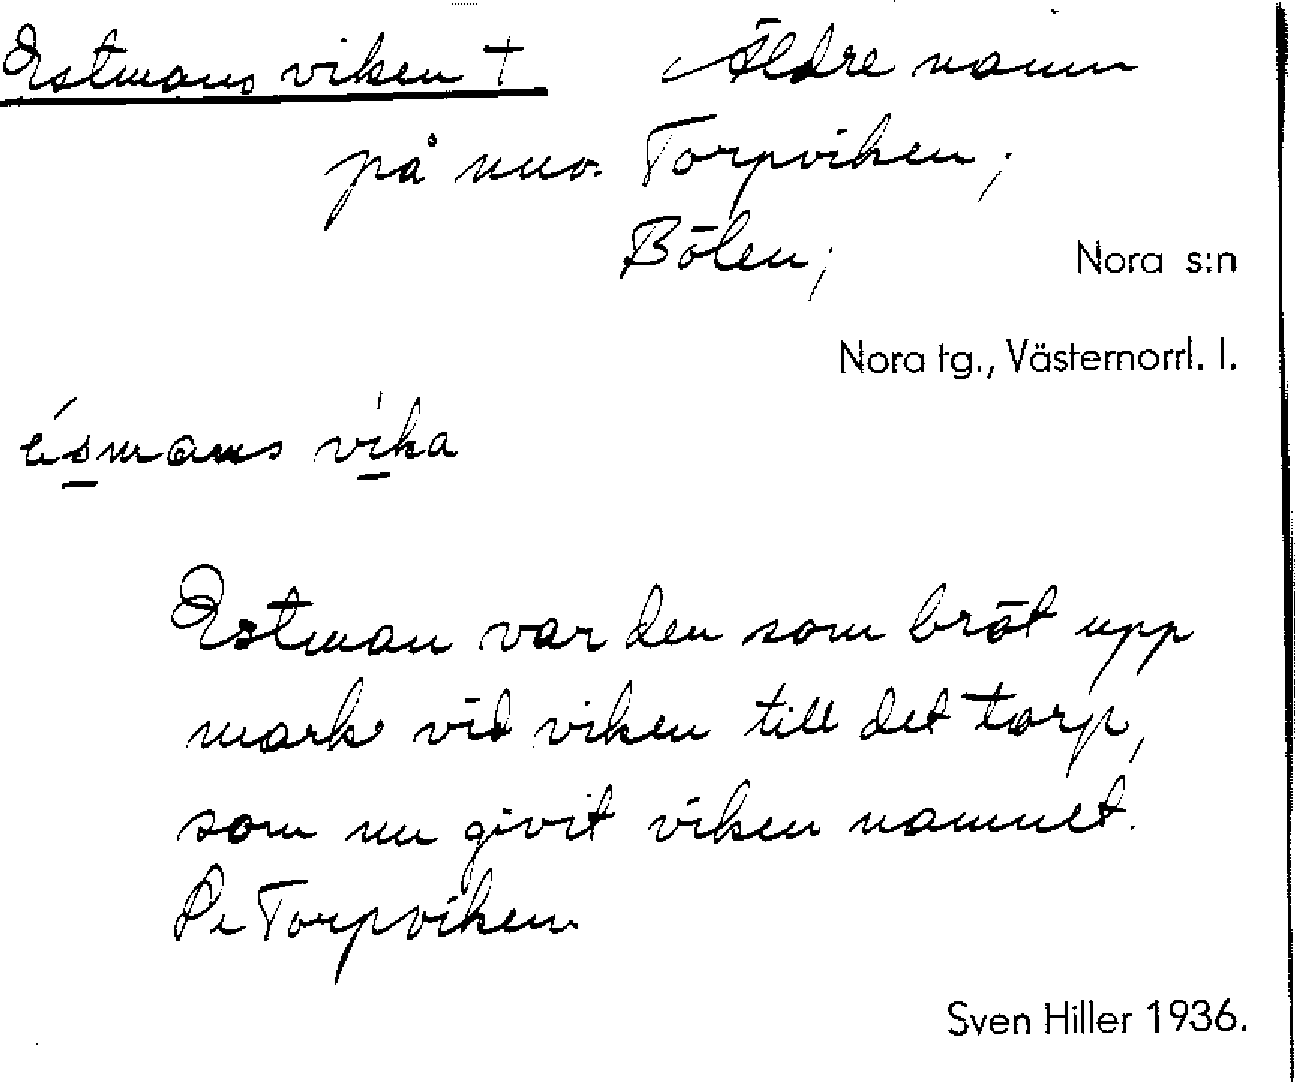 Estmans viken † Äldre namn
på nuv. Torpviken;
Bölen;
Nora s:n
Nora tg., Västernorrl. l.
ésmans vika
Estman var den som bröt upp
mark vid viken till det torp,
som nu givit viken namnet.
Se Torpviken
Sven Hiller 1936.